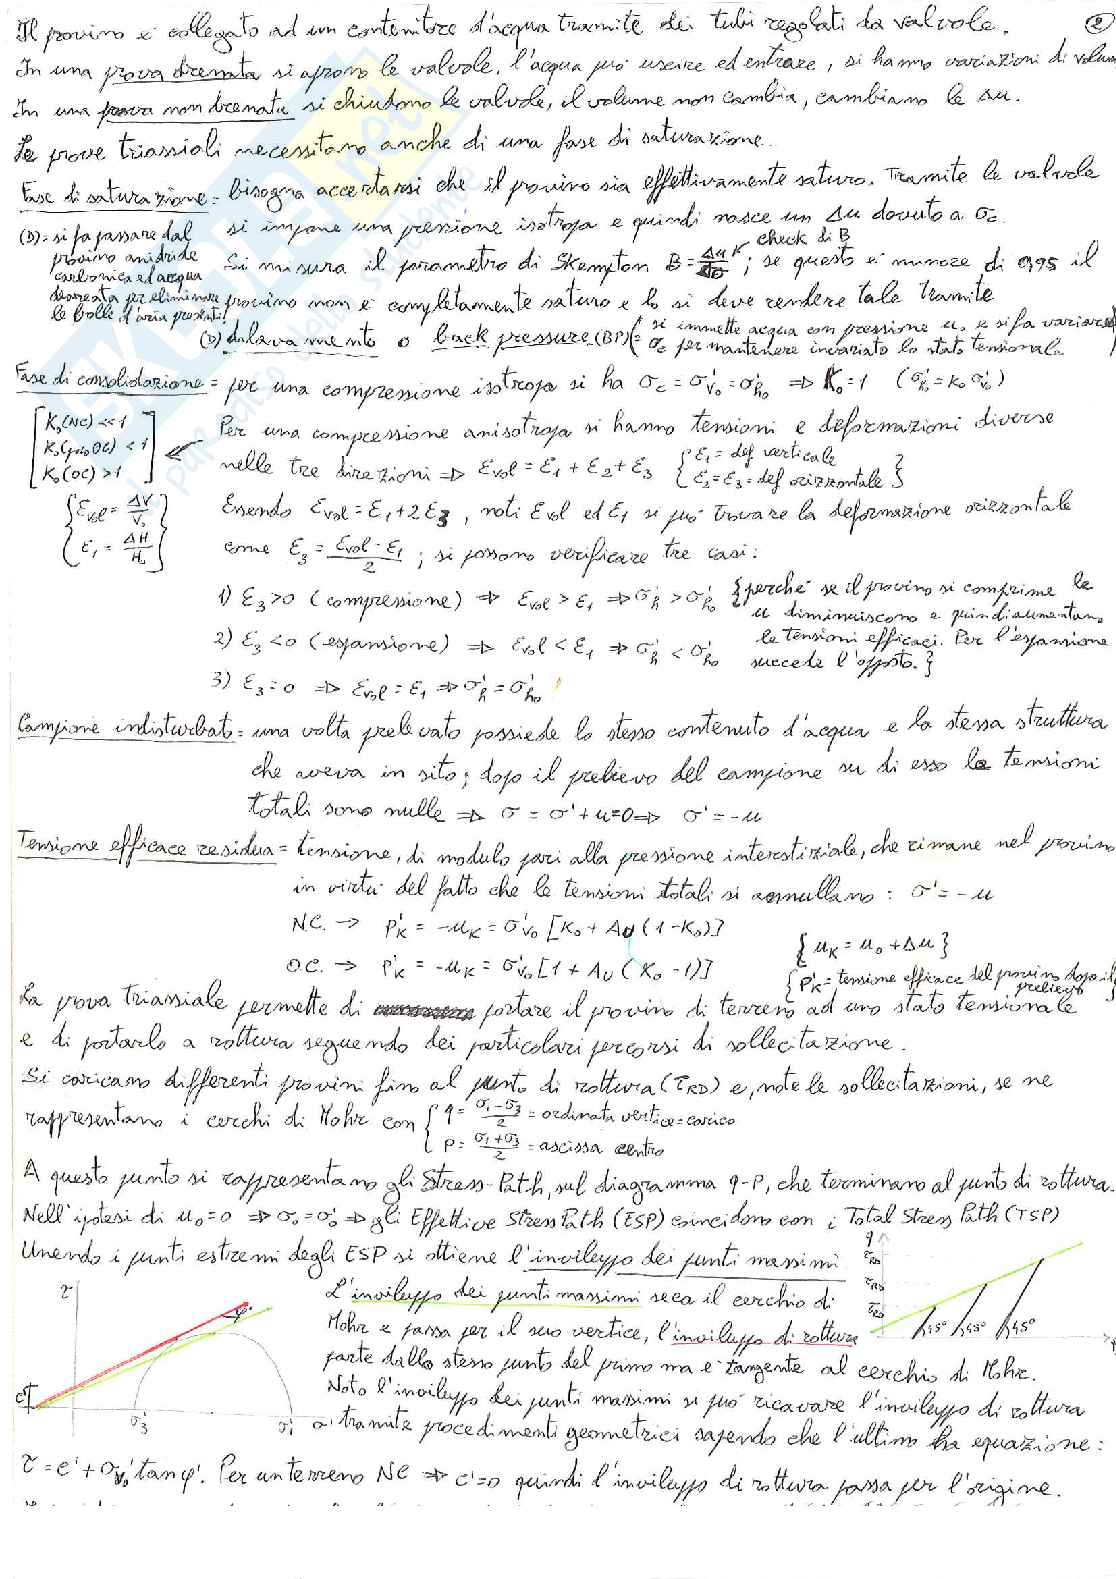 Il provino è collegato ad un contenitore d'acqua tramite dei tubi regolati da valvole. 2
In una prova drenata si aprono le valvole, l'acqua può uscire ed entrare, si hanno variazioni di volume
In una prova non drenata si chiudono le valvole, il volume non cambia, cambiano le Δu.
Le prove triassiali necessitano anche di una fase di saturazione.
Fase di saturazione = bisogna accertarsi che il provino sia effettivamente saturo. Tramite le valvole
si impone una pressione isotropa e quindi nasce un Δu dovuto a σc.
(D) = si fa passare dal
provino anidride
carbonica ed acqua
deareata per eliminare
le bolle d'aria presenti!
check di B
Si misura il parametro di Skempton B = Δu/Δσ ; se questo è minore di 0,95 il
provino non è completamente saturo e lo si deve rendere tale tramite
(D) dilavamento o back pressure (BP) (= si immette acqua con pressione u0 e si fa variare
σc per mantenere invariato lo stato tensionale
Fase di consolidazione = per una compressione isotropa si ha σc = σ'v0 = σ'h0 ⇒ K0 = 1 (σ'h0 = K0 σ'v0)
[K0(NC) << 1
K0(poco OC) < 1
K0(OC) > 1]
Per una compressione anisotropa si hanno tensioni e deformazioni diverse
nelle tre direzioni ⇒ εvol = ε1 + ε2 + ε3 {ε1 = def verticale
ε2 = ε3 = def orizzontale}
{εvol = ΔV/V0
ε1 = ΔH/H0}
Essendo εvol = ε1 + 2ε3, noti εvol ed ε1 si può trovare la deformazione orizzontale
come ε3 = (εvol - ε1)/2 ; si possono verificare tre casi:
1) ε3 > 0 (compressione) ⇒ εvol > ε1 ⇒ σ'h > σ'h0 {perché se il provino si comprime le
u diminuiscono e quindi aumentano
2) ε3 < 0 (espansione) ⇒ εvol < ε1 ⇒ σ'h < σ'h0 le tensioni efficaci. Per l'espansione
succede l'opposto.}
3) ε3 = 0 ⇒ εvol = ε1 ⇒ σ'h = σ'h0
Campione indisturbato = una volta prelevato possiede lo stesso contenuto d'acqua e la stessa struttura
che aveva in sito; dopo il prelievo del campione su di esso le tensioni
totali sono nulle ⇒ σ = σ' + u = 0 ⇒ σ' = -u
Tensione efficace residua = tensione, di modulo pari alla pressione interstiziale, che rimane nel provino
in virtù del fatto che le tensioni totali si annullano: σ' = -u
N.C. → P'K = -uK = σ'v0 [K0 + AU (1 - K0)]
{uK = u0 + Δu}
O.C. → P'K = -uK = σ'v0 [1 + AU (K0 - 1)]
{P'K = tensione efficace del provino dopo il
prelievo}
La prova triassiale permette di portare il provino di terreno ad uno stato tensionale
e di portarlo a rottura seguendo dei particolari percorsi di sollecitazione.
Si caricano differenti provini fino al punto di rottura (τRD) e, note le sollecitazioni, se ne
rappresentano i cerchi di Mohr con {q = (σ1-σ3)/2 = ordinata vertice = carico
p = (σ1+σ3)/2 = ascissa centro
A questo punto si rappresentano gli Stress-Path, sul diagramma q-p, che terminano al punto di rottura.
Nell'ipotesi di u0 = 0 ⇒ σ0 = σ'0 ⇒ gli Effettive Stress Path (ESP) coincidono con i Total Stress Path (TSP)
Unendo i punti estremi degli ESP si ottiene l'inviluppo dei punti massimi
q
τRD
τRD
τRD
45° 45° 45°
L'inviluppo dei punti massimi seca il cerchio di
Mohr e passa per il suo vertice, l'inviluppo di rottura
parte dallo stesso punto del primo ma è tangente al cerchio di Mohr.
Noto l'inviluppo dei punti massimi si può ricavare l'inviluppo di rottura
tramite procedimenti geometrici sapendo che l'ultimo ha equazione:
τ
φ'
c'
σ'3 σ'1 σ'
τ = c' + σ'v0 tanφ'. Per un terreno NC ⇒ c' = 0 quindi l'inviluppo di rottura passa per l'origine.